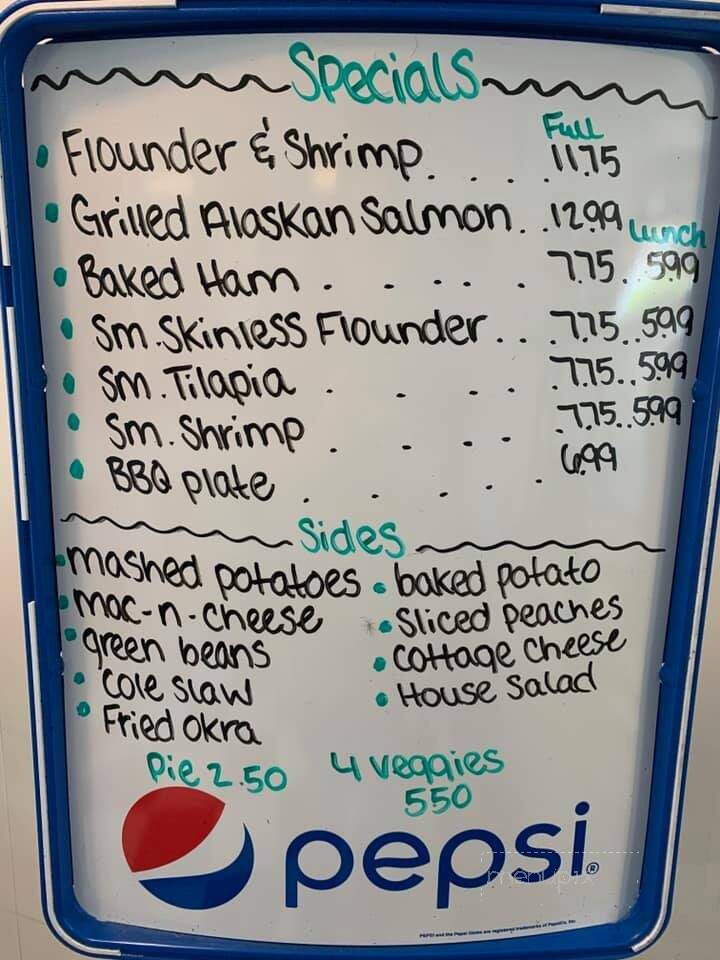 Specials
Full
• Flounder & Shrimp. . . . 11.75
• Grilled Alaskan Salmon. . 12.99
Lunch
• Baked Ham . . . . 7.75. . 5.99
• Sm. Skinless Flounder. . . 7.75. . 5.99
• Sm. Tilapia . . . . 7.75. . 5.99
• Sm. Shrimp . . . . 7.75. . 5.99
• BBQ plate . . . . 6.99
Sides
• mashed potatoes • baked potato
• mac-n-cheese • Sliced Peaches
• green beans • Cottage Cheese
• Cole slaw • House Salad
• Fried Okra
Pie 2.50 4 veggies
550
pepsi®
menupix
PEPSI and the Pepsi Globe are registered trademarks of PepsiCo, Inc.